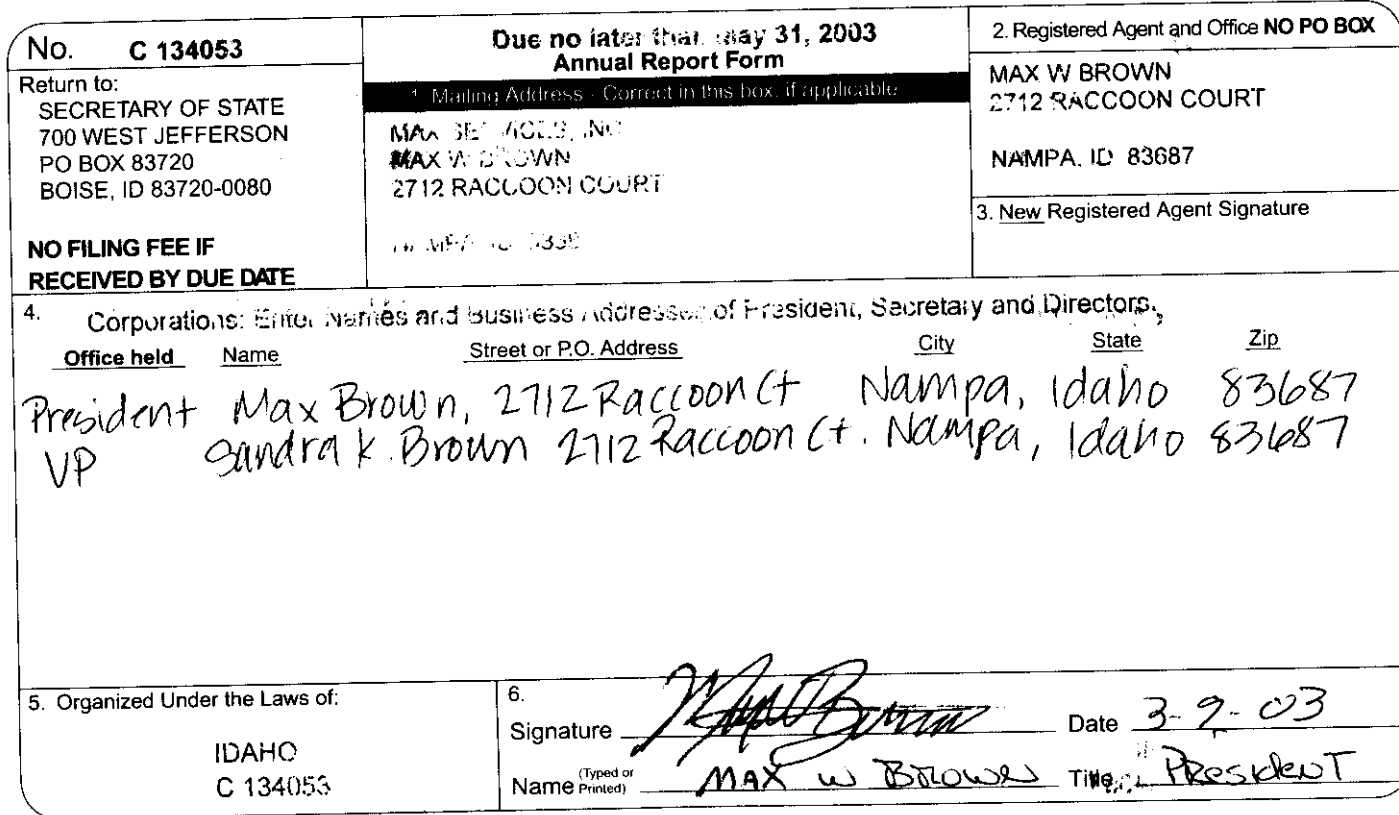 No. C 134053
Return to:
SECRETARY OF STATE
700 WEST JEFFERSON
PO BOX 83720
BOISE, ID 83720-0080
NO FILING FEE IF
RECEIVED BY DUE DATE
Due no later than May 31, 2003
Annual Report Form
1. Mailing Address - Correct in this box, if applicable
MAX SERVICES, INC.
MAX W BROWN
2712 RACCOON COURT
NAMPA ID
2. Registered Agent and Office NO PO BOX
MAX W BROWN
2712 RACCOON COURT
NAMPA, ID 83687
3. New Registered Agent Signature
4. Corporations: Enter Names and Business Addresses of President, Secretary and Directors.
Office held Name Street or P.O. Address City State Zip
President Max Brown, 2712 Raccoon Ct Nampa, Idaho 83687
VP Sandra K. Brown 2712 Raccoon Ct. Nampa, Idaho 83687
5. Organized Under the Laws of:
IDAHO
C 134053
6.
Signature Max W Brown Date 3-9-03
Name (Typed or Printed) MAX W BROWN Title President